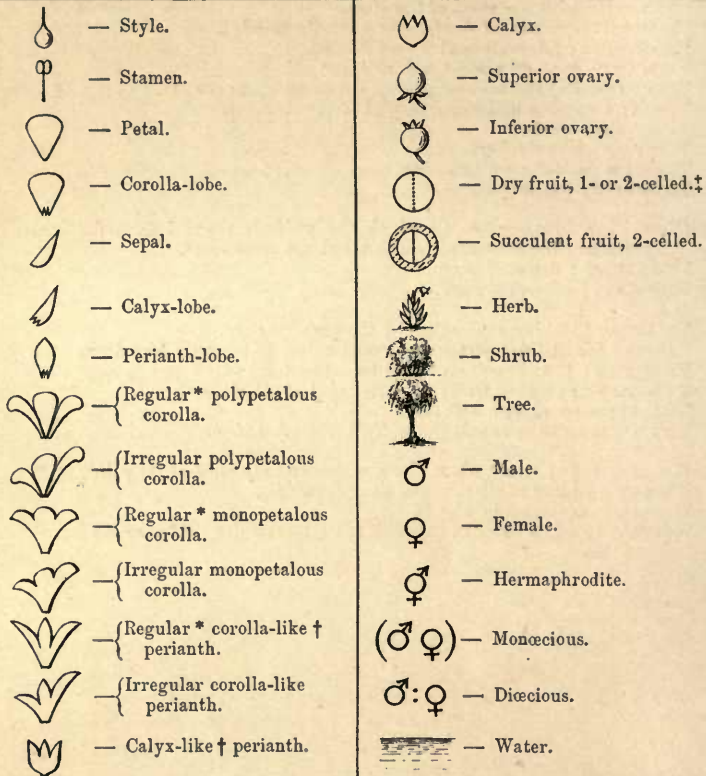 — Style.
— Stamen.
— Petal.
— Corolla-lobe.
— Sepal.
— Calyx-lobe.
— Perianth-lobe.
— {Regular * polypetalous
corolla.
— {Irregular polypetalous
corolla.
— {Regular * monopetalous
corolla.
— {Irregular monopetalous
corolla.
— {Regular * corolla-like †
perianth.
— {Irregular corolla-like
perianth.
— Calyx-like † perianth.
— Calyx.
— Superior ovary.
— Inferior ovary.
— Dry fruit, 1- or 2-celled.‡
— Succulent fruit, 2-celled.
— Herb.
— Shrub.
— Tree.
♂ — Male.
♀ — Female.
⚥ — Hermaphrodite.
(♂ ♀) — Monœcious.
♂:♀ — Diœcious.
— Water.